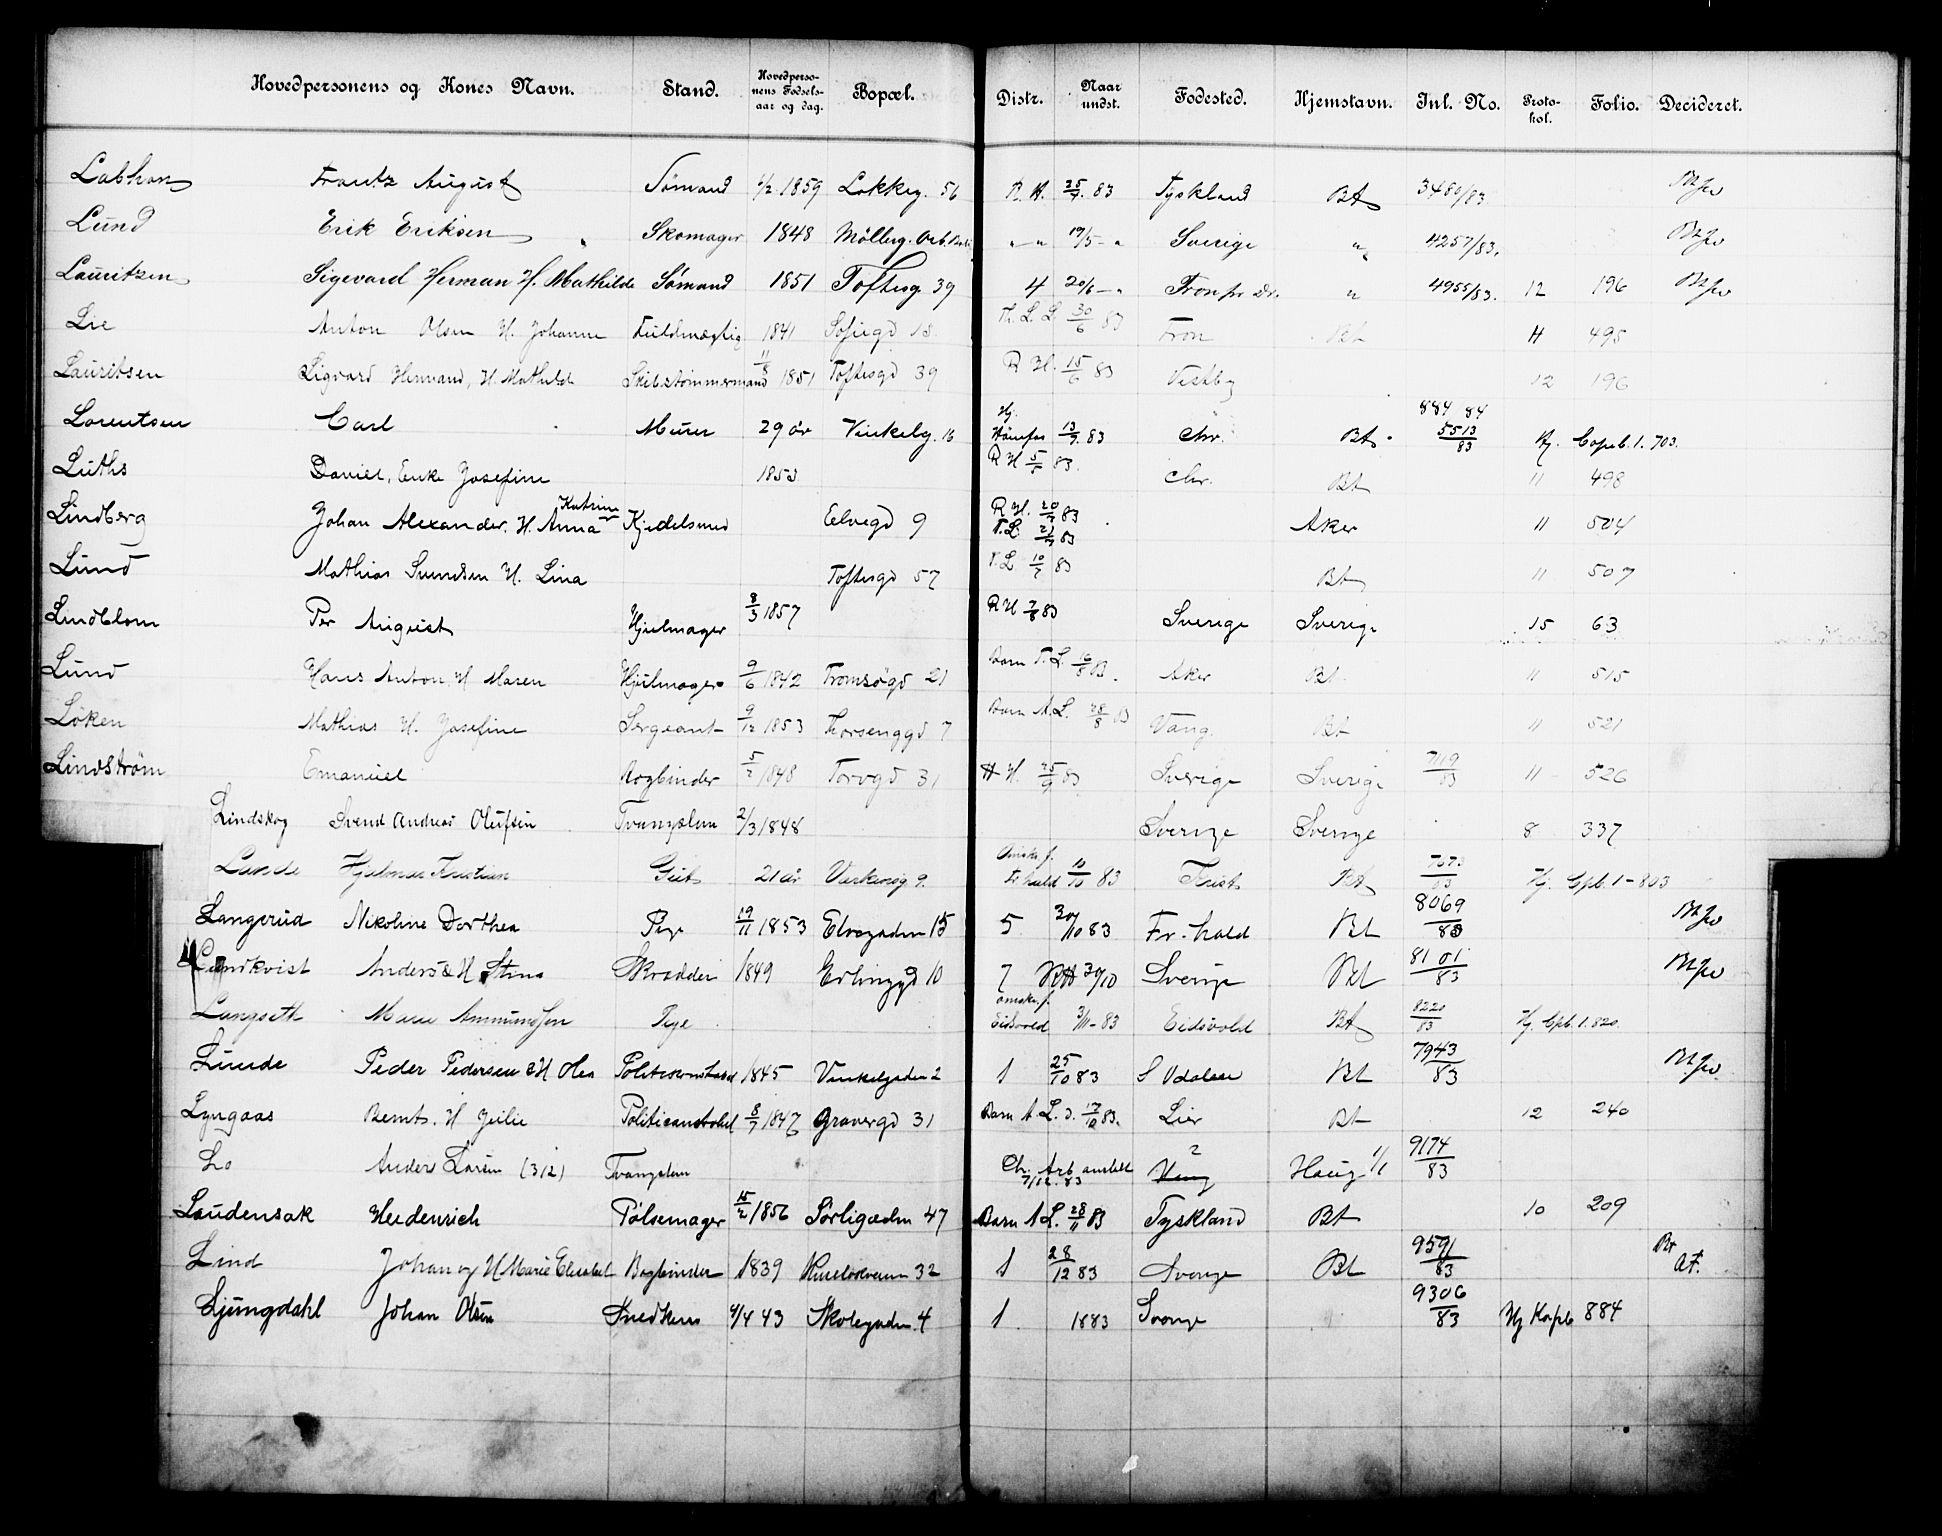 Hovedpersonens og Kones Navn. Stand. Hovedperso-nens Fodsels-aar og dag. Bopæl. Distr. Naar undst. Fodested. Hjemstavn. Inl. No. Proto-kol. Folio. Decideret.
Labhan Frantz August Sømand 1/2 1859 Lakkeg. 56 R. H. 25/4. 83 Tyskland Bt 3480/83
Lund Erik Eriksen Skomager 1848 Möllerg. 19/5 Sverige " 4257/83.
Lauritzen Sigevard Herman H. Mathilde Sømand 1851 Toftesg 39 4 20/6 " 4955/83. 12 196
Lie Anton Olsen H. Johanne Fuldmægtig 1841 Sofiegd 18 Th. L. L. 30/6 83 Fron Bt 11 495
Lauritsen Sigvard Hermand, H. Mathilde Skibstømmermand 11/8 1851 Toftesgd 39 R H. 15/6 83 Vestby 12 196
Lorentsen Carl Murer 29 år Vinkelg. 16 Hj. Hönefos 13/7. 83 Chr. Bt. 884 84 5513/83 Hj. Copeb. 1. 703.
Luths Daniel, Enke Josefine 1853 R H 5/5 83. Chr. Bt 11 498
Lindberg Johan Alexander. H. Anna Katrine Kjedelsmed Eelvegd 9 R H. 20/7 83 T. L. 21/7 83 Aker 11 504
Lund Mathias Svendsen H. Lina Toftesgd 57 T. L 10/7 83 Bt 11 507
Lindblom Per August Hjulmager 8/3 1857 R H 7/8 83 Sverige Sverige 15 63
Lund Hans Anton, H Maren Hjulmager 9/6 1842 Tromsøgd 21 Barn T. L. 16/8 83. Aker Bt 11 515
Løken Mathias H. Josefine Sergeant 9/12 1853 Thorsenggd 7 Barn A. L. 28/8 83 Vang. Bt 11 521
Lindstrøm Emanuel Bogbinder 5/2 1848 Torvgd 31 A H. 25/9 83 Sverige Sverige 7119/83 11 526
Lindskog Svend Andreas Olufsen Tvangslem 2/3 1848 Sverige Sverige 8 337
Lunde Hjalmar Kristian Gut 21 år 10/10 83 Bt Hj. Cpb. 1 - 803
Langerud Nikoline Dorthea Pige 19/11 1853 Elvegaden 15 5 30/10 83 Fr. hald Bt 8069/83
Lundkvist Anders & H Stina Skrædder 1849 Erlinggd 10 7 RH 30/10 Sverige Bt 8101/83
Langseth Marie Ammundsen Pige Eidsvold 2/11 - 83 Eidsvold Bt 8220/83 Hj. Cpb. 1. 820.
Lunde Peder Pedersen & H Olea Politikonstabel 1845 Vinkelgaden 2 1 25/10 83 S Odalen Bt 7943/83
Lyngaas Bernts. H Julie Politiconstabel 8/7 1847 Gravergd 31 Barn A L. d. 17/10 83. Lier Bt 12 240
Lo Anders Larsen (312) Tvangslem Ch. Arb. anstalt 7/12. 83 2 Haug 1/1 9174/83
Laudensak Heidenrich Pølsemager 15/2 1856 Sørligaden 47 Barn A L. 28/11 83 Tyskland Bt 10 209
Lind Johan og H Marie Elisabet Bogbinder 1839 32 1 28/12 83 Sverige Bt 9591/83 Bt At.
Ljungdahl Johan Olsen Snedker 4/4 43 Skolegaden 4 1 1883 Sverige 9306/83 Hj Kopb 884